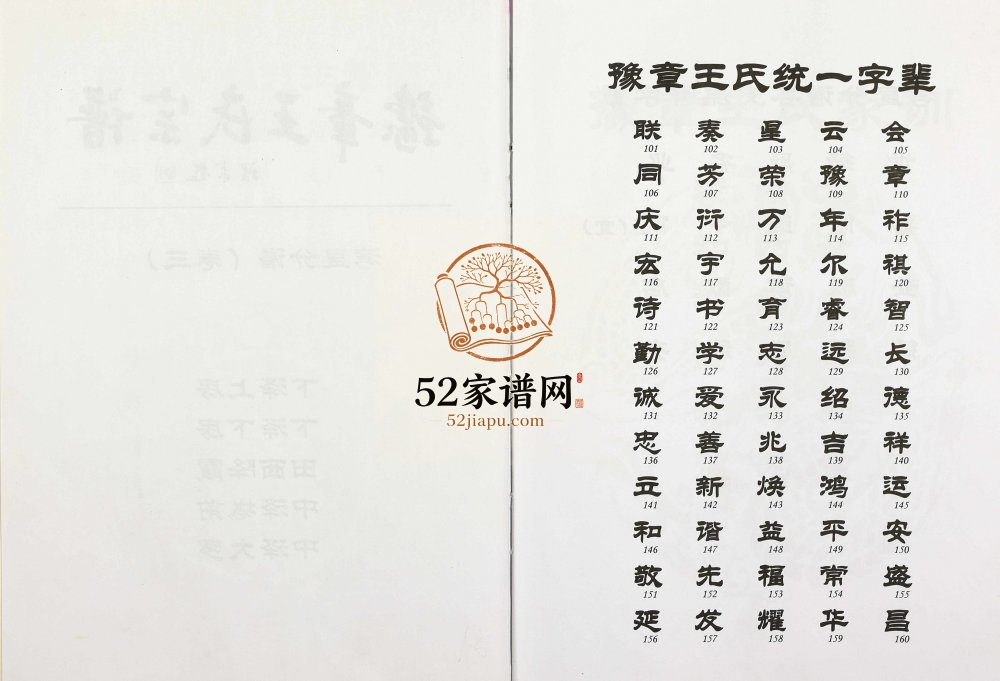 豫章王氏统一字辈
联 奏 星 云 会
101 102 103 104 105
同 芳 荣 豫 章
106 107 108 109 110
庆 衍 万 年 祚
111 112 113 114 115
宏 宇 允 尔 祺
116 117 118 119 120
诗 书 育 睿 智
121 122 123 124 125
勤 学 志 远 长
126 127 128 129 130
诚 爱 永 绍 德
131 132 133 134 135
忠 善 兆 吉 祥
136 137 138 139 140
立 新 焕 鸿 运
141 142 143 144 145
和 谐 益 平 安
146 147 148 149 150
敬 先 福 常 盛
151 152 153 154 155
延 发 耀 华 昌
156 157 158 159 160
52家谱网
52jiapu.com